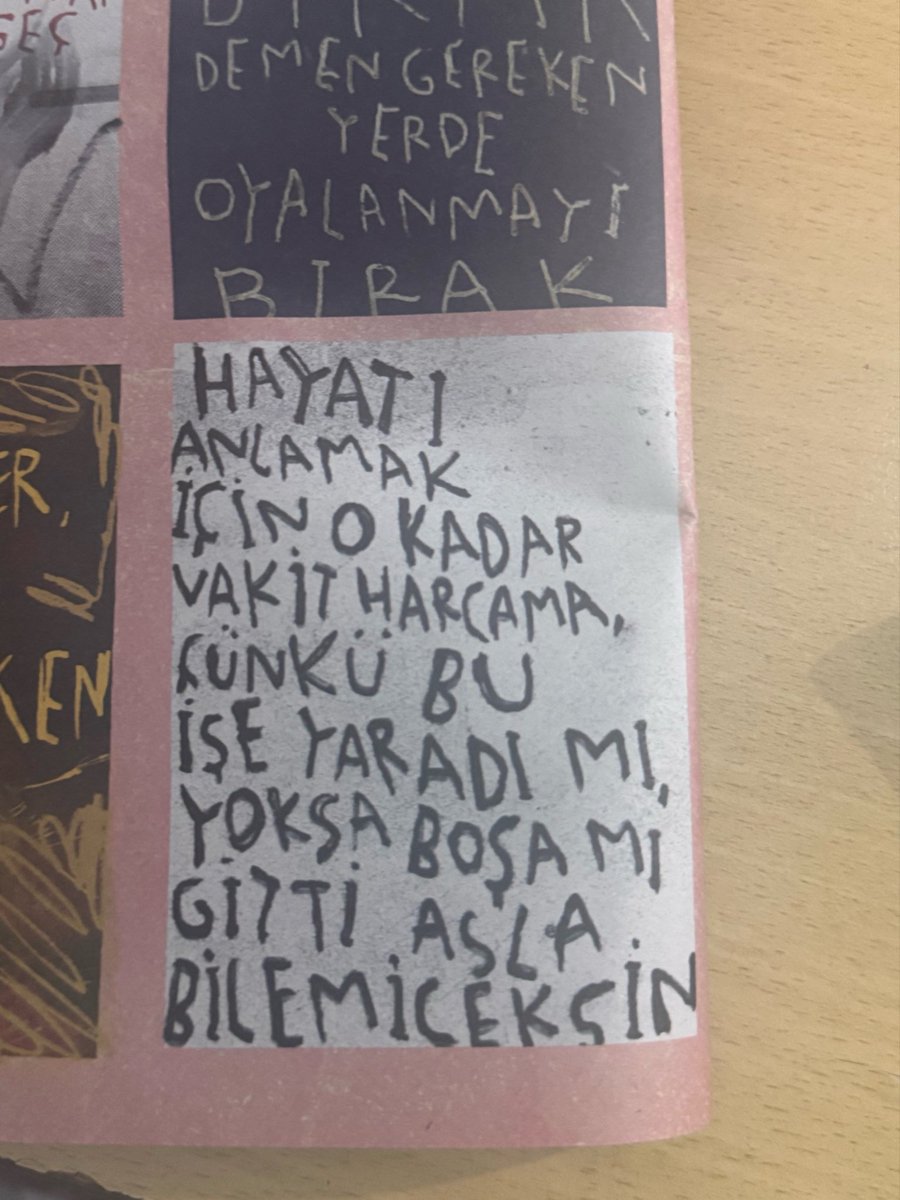 GEÇ
DEMEN GEREKEN
YERDE
OYALANMAYI
BIRAK
HAYATI
ANLAMAK
İÇİN O KADAR
VAKİT HARCAMA,
ÇÜNKÜ BU
İŞE YARADI MI,
YOKSA BOŞA MI
GİTTİ ASLA
BİLEMİCEKSİN
ER,
KEN